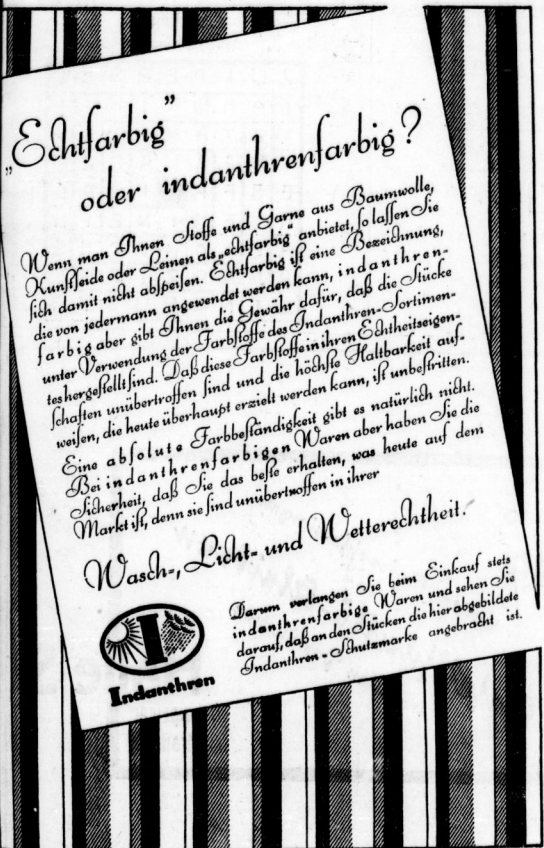 „Echtfarbig”
oder indanthrenfarbig?
Wenn man Ihnen Stoffe und Garne aus Baumwolle,
Kunstseide oder Leinen als „echtfarbig“ anbietet, so lassen Sie
sich damit nicht abspeisen. Echtfarbig ist eine Bezeichnung,
die von jedermann angewendet werden kann, indanthren-
farbig aber gibt Ihnen die Gewähr dafür, daß die Stücke
unter Verwendung der Farbstoffe des Indanthren-Sortimen-
tes hergestellt sind. Daß diese Farbstoffe in ihren Echtheitseigen-
schaften unübertroffen sind und die höchste Haltbarkeit auf-
weisen, die heute überhaupt erzielt werden kann, ist unbestritten.
Eine absolute Farbbeständigkeit gibt es natürlich nicht.
Bei indanthrenfarbigen Waren aber haben Sie die
Sicherheit, daß Sie das beste erhalten, was heute auf dem
Markt ist, denn sie sind unübertroffen in ihrer
Wasch-, Licht- und Wetterechtheit.
Darum verlangen Sie beim Einkauf stets
indanthrenfarbige Waren und sehen Sie
darauf, daß an den Stücken die hier abgebildete
Indanthren-Schutzmarke angebracht ist.
I
Indanthren